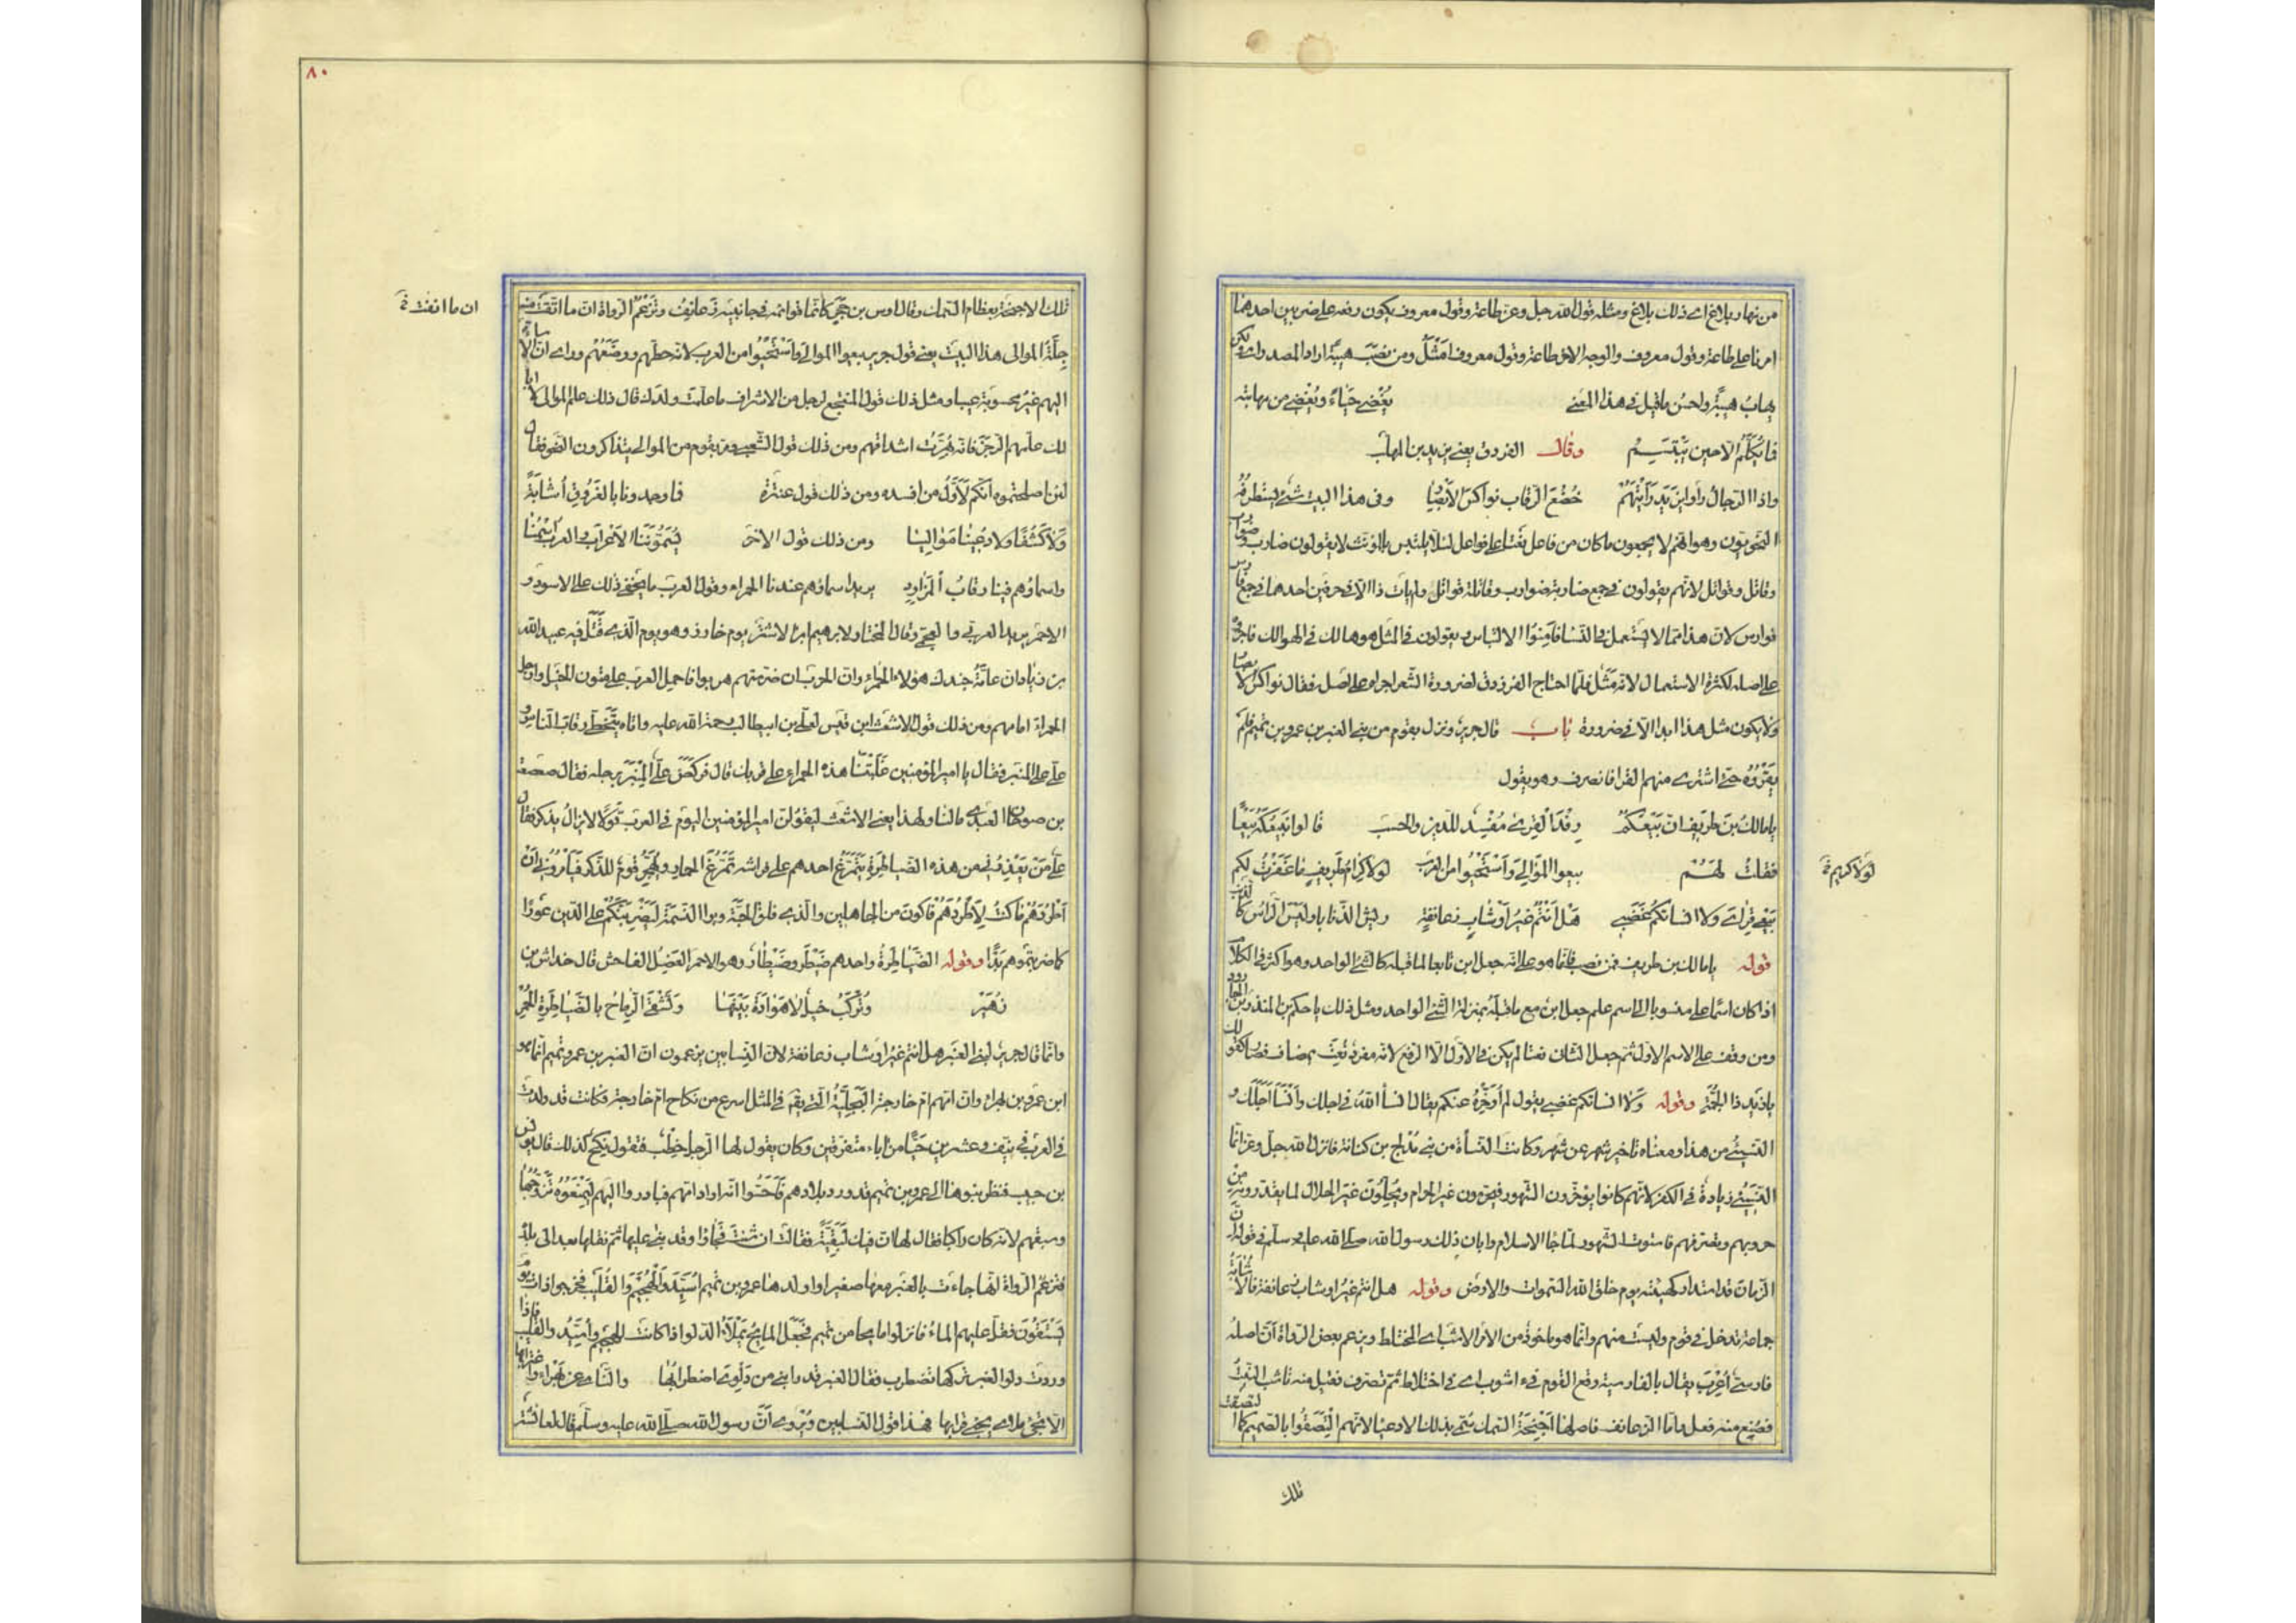 من نهار بلاغ اى ذلك بلاغ ومثله قول الله جل وعز طاعة وقول معروف يكون رفعه على ضربين احدهما
امرنا على طاعة وقول معروف والوجه الاخر طاعة وقول معروف امثل ومن نصب هيبة اراد المصدر اى ولكن
يهاب هيبة واحسن ما قيل فى هذا المعنى يغضى حياء ويغضى من مهابته
فما يكلم الا حين يبتسم وقال الفرزدق يعنى يزيد بن المهلب
واذا الرجال راوا يزيد رايتهم خضع الرقاب نواكس الابصار وفى هذا البيت شئ يستطرفه
النحويون وهو انهم لا يجمعون ما كان من فاعل نعتا على فواعل لئلا يلتبس بالمؤنث لا يقولون ضارب وضوارب
وقاتل وقواتل لانهم يقولون فى جمع ضاربة ضوارب وقاتلة قواتل ولم يات ذا الا فى حرفين احدهما فى جمع فارس
فوارس لان هذا مما لا يستعمل فى النسا فامنوا الالتباس ويقولون فى المثل هو هالك فى الهوالك فاجروه
على اصله لكثرة الاستعمال لانه مثل فلما احتاج الفرزدق لضرورة الشعر اجراه على اصله فقال نواكس الابصار
ولا يكون مثل هذا ابدا الا فى ضرورة باب قال جرير ونزل بقوم من بنى العنبر بن عمرو بن تميم فلم
يقروه حتى اشترى منهم القرا فانصرف وهو يقول
يا مالك بن طريف ان بيعكم رفد القرى مفسد للدين والحسب قالوا نبيعكه بيعا
فقلت لهم بيعوا الموالى واستحيوا من العرب لولا كرام طريف ما غفرت لكم
بيعى قراى ولا انساتكم غضبى هل انتم غير اوشاب زعانفة ريش الذنابا وليس الراس كالذنب
قوله يا مالك بن طريف فمن نصب فانما هو على انه جعل ابن تابعا لما قبله كالشئ الواحد وهو اكثر فى الكلام
اذا كان اسما علما منسوبا الى اسم علم جعل ابن مع ما قبله بمنزلة الشئ الواحد ومثل ذلك يا حكم بن المنذر بن الجارود
ومن وقف على الاسم الاول ثم جعل الثان نعتا لم يكن فى الاول الا الرفع لانه مفرد نعت بمضاف فصار كقولك
يا زيد ذا الجمة وقوله ولا انساتكم غضبى يقول لم اؤخره عنكم يقال انسا الله فى اجلك وانسا اجلك و
النسيئ من هذا ومعناه تاخير شهر عن شهر وكانت النسأة من بنى مدلج بن كنانة فانزل الله جل وعز انما
النسيئ زيادة فى الكفر لانهم كانوا يؤخرون الشهور فيحرمون غير الحرام ويحلون غير الحلال لما يقدرونه من
حروبهم وتصرفهم فاستوت الشهور لما جا الاسلام وابان ذلك رسول الله صلى الله عليه وسلم فى قوله ان
الزمان قد استدار كهيئته يوم خلق الله السموات والارض وقوله هل انتم غير اوشاب زعانفة فالاشابة
جماعة تدخل فى قوم وليست منهم وانما هو ماخوذ من الامر الاشب اى المختلط ويزعم بعض الرواة ان اصله
فارسى اعرب يقال بالفارسية وقع القوم فى اشوب اى فى اختلاط ثم تصرف فقيل منه تاشب النبت
فصنع منه فعل واما الزعانف فاصلها اجنحة السمك سمى بذلك الادعيا لانهم التصقوا بالصميم كما التصقت
تلك
لولا كريم خ
٨٠
تلك الاجنحة بعظام السمك وقال اوس بن حجر كانما قوائمه فى جانبيه زعانف وتزعم الرواة ان ما انفت منه
جلة الموالى هذا البيت يعنى قول جرير بيعوا الموالى واستحيوا من العرب لانه حطهم ووضعهم وراى ان الاساءة
اليهم غير محسوبة عيبا ومثل ذلك قول المنتجع لرجل من الاشراف ما علمت ولدك قال ذلك علم الموالى لا ابا
لك علمهم الرجز فانه يهرت اشداقهم ومن ذلك قول الشعبى ومر بقوم من الموالى يتذاكرون النحو فقال
لئن اصلحتموه انكم لاول من افسده ومن ذلك قول عنترة فما وجدونا بالفروق اشابة
ولا كشفا ولا دعينا مواليا ومن ذلك قول الاخر يسموننا الاعراب والعرب اسمنا
واسماؤهم فينا رقاب المزاود يريد اسماؤهم عندنا الحمراء وقول العرب ما يخفى ذلك على الاسود و
الاحمر يريد العربى والعجمى وقال المختار لابرهيم ابن الاشتر يوم خازر وهو يوم الذى قتل فيه عبيد الله
بن زياد ان عامة جندك هؤلاء الحمراء وان الحرب ان ضرستهم هربوا فاحمل العرب على متون الخيل وارجل
الحمراء امامهم ومن ذلك قول الاشعث ابن قيس لعلى بن ابيطالب رحمة الله عليه واتاه يتخطى رقاب الناس و
على على المنبر فقال يا امير المؤمنين غلبتنا هذه الحمراء على قربك قال فركض على المنبر برجله فقال صعصعة
بن صوحان العبدى مالنا ولهذا يعنى الاشعث ليقولن امير المؤمنين اليوم فى العرب قولا لا يزال يذكر فقال
على من يعذرنى من هذه الضياطرة يتمرغ احدهم على فراشه تمرغ الحمار ويهجر قوم للذكر فيامرونى ان
اطردهم ما كنت لاطردهم فاكون من الجاهلين والذى فلق الحبة وبرا النسمة ليضربنكم على الدين عودا
كما ضربتموهم بدا وقوله الضياطرة واحدهم ضيطر وضيطار وهو الاحمر العضل الفاحش قال خداش بن
زهير وتركب خيل لا هوادة بينها وتشقى الرماح بالضياطرة الحمر
وانما قال جرير لبنى العنبر هل انتم غير اوشاب زعانفة لان النسابين يزعمون ان العنبر بن عمرو بن تميم انما هو
ابن عمرو بن بهراء وان امهم ام خارجة البجلية التى يقال فى المثل اسرع من نكاح ام خارجة فكانت قد ولدت
فى العرب فى نيف وعشرين حيا من اباء متفرقين وكان يقول لها الرجل خطب فتقول نكح كذلك قال يونس
بن حبيب فنظر بنوها الى عمرو بن تميم قد ورد بلادهم فاحسوا انه اراد امهم فبادروا اليهم ليمنعوه تزوجها
وسبقهم لانه كان راكبا فقال لها ان فيك لبقية فقالت ان شئت فجاؤا وقد بنى عليها ثم نقلها بعد الى بلده
فتزعم الرواة انها جاءت بالعنبر معها صغيرا واولدها عمرو بن تميم اسيد والهجيم والقليب فخرجوا ذات يوم
يستقون فقل عليهم الماء فانزلوا مايحا من تميم فجعل المايح يملأ الدلو اذا كانت للهجيم واسيد والقليب فاذا
وردت دلو العنبر تركها تضطرب فقال العنبر قد رابنى من دلوى اضطرابها والنائ عن بهراء واغترابها
الا تجئ ملاى يجئ قرابها فهذا قول النسابين ويروى ان رسول الله صلى الله عليه وسلم قال لعائشة
ان ما انفت خ